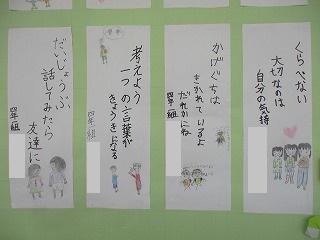 くらべない
大切なのは
自分の気持
かげぐちは
きかれているよ
だれかにね
四年 組
考えよう
一つの言葉が
きょうきになる
四年 組
だいじょうぶ
話してみたら
友達に
四年 組